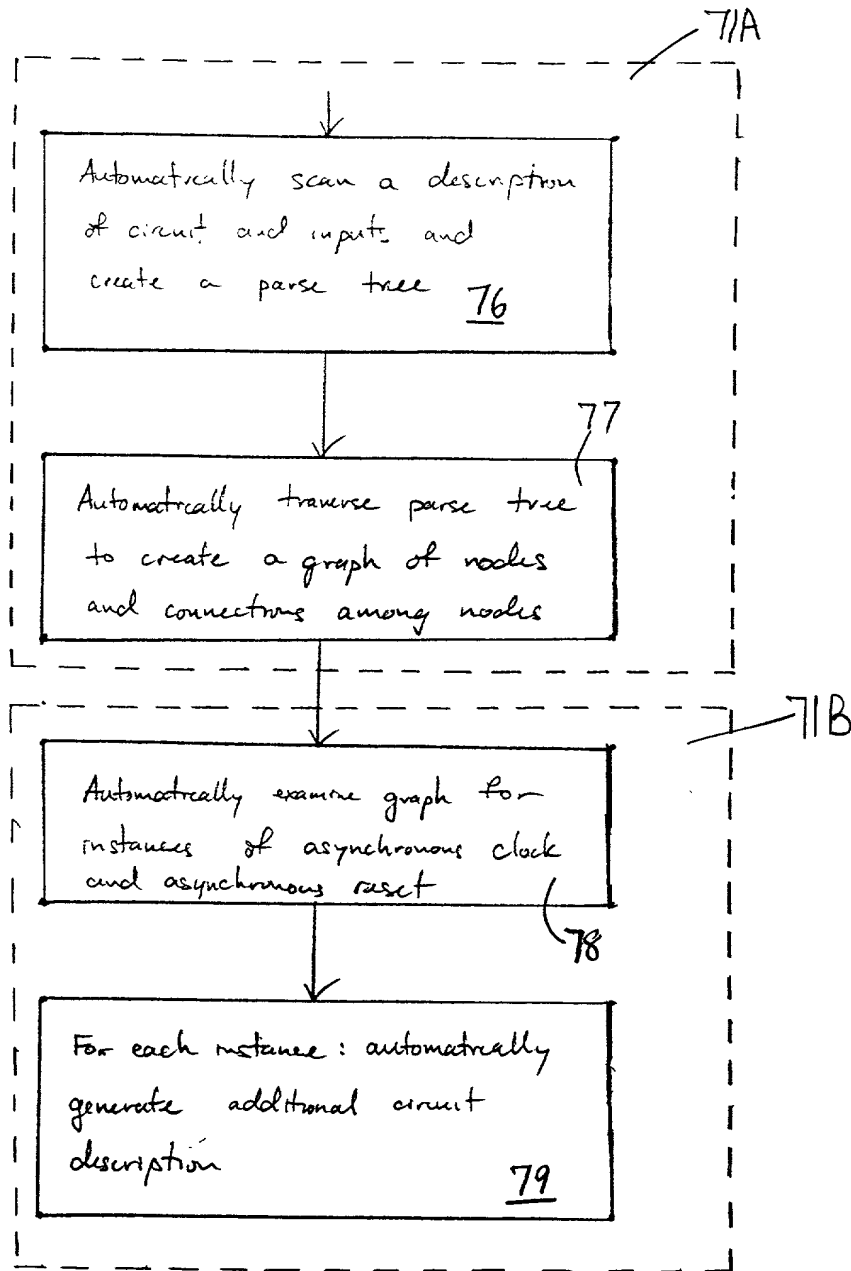 71A
Automatically scan a description
of circuit and inputs and
create a parse tree 76
77
Automatically traverse parse tree
to create a graph of nodes
and connections among nodes
71B
Automatically examine graph for
instances of asynchronous clock
and asynchronous reset
78
For each instance: automatically
generate additional circuit
description
79